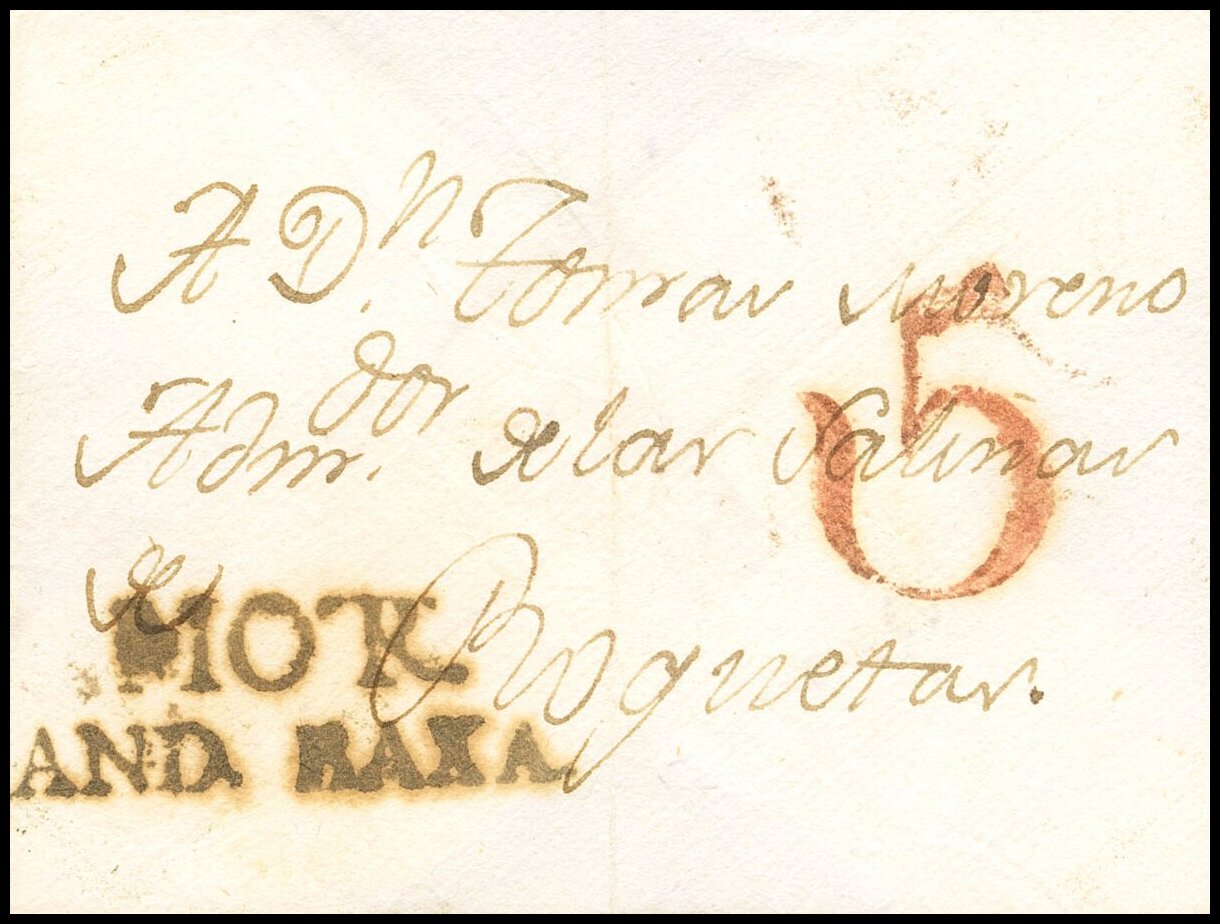 A Dn. Tomas Moreno
Admdor. de las Salinas
5
de Roquetas.
MOTR
AND. BAXA